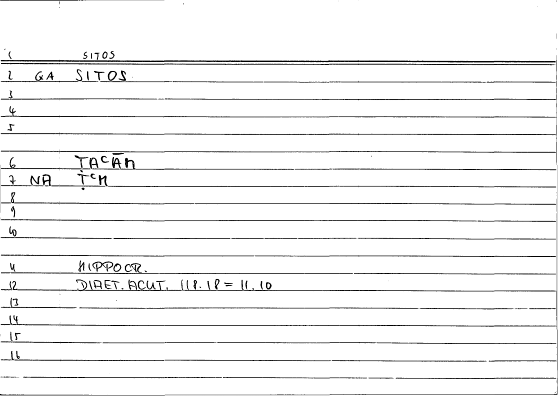 1 SITOS
2 GA SITOS
3
4
5
6 ṬAᶜĀM
7 NA ṬᶜM
8
9
10
11 HIPPOCR.
12 DIAET. ACUT. 118.18 = 11.10
13
14
15
16